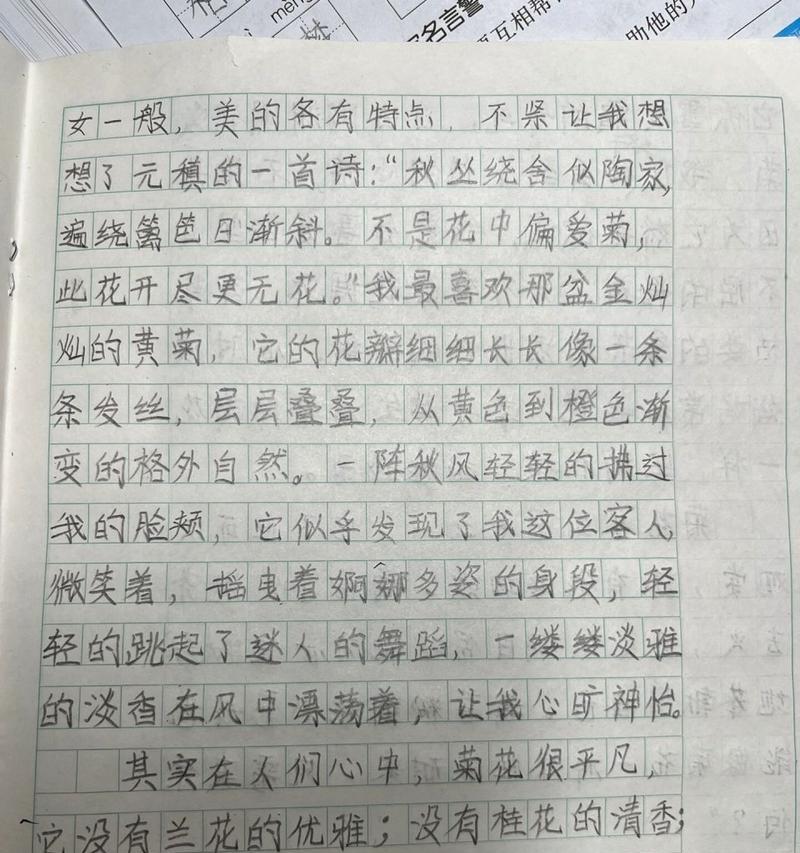 meng
名言警
互相帮
助他的
女一般，美的各有特点，不紧让我想
想了元稹的一首诗：“秋丛绕舍似陶家，
遍绕篱笆日渐斜。不是花中偏爱菊，
此花开尽更无花。”我最喜欢那盆金灿
灿的黄菊，它的花瓣细细长长像一条
条发丝，层层叠叠，从黄色到橙色渐
变的格外自然。一阵秋风轻轻的拂过
我的脸颊，它似乎发现了我这位客人，
微笑着，摇曳着婀娜多姿的身段，轻
轻的跳起了迷人的舞蹈，一缕缕淡雅
的淡香在风中漂荡着，让我心旷神怡。
其实在人们心中，菊花很平凡，
它没有兰花的优雅；没有桂花的清香；